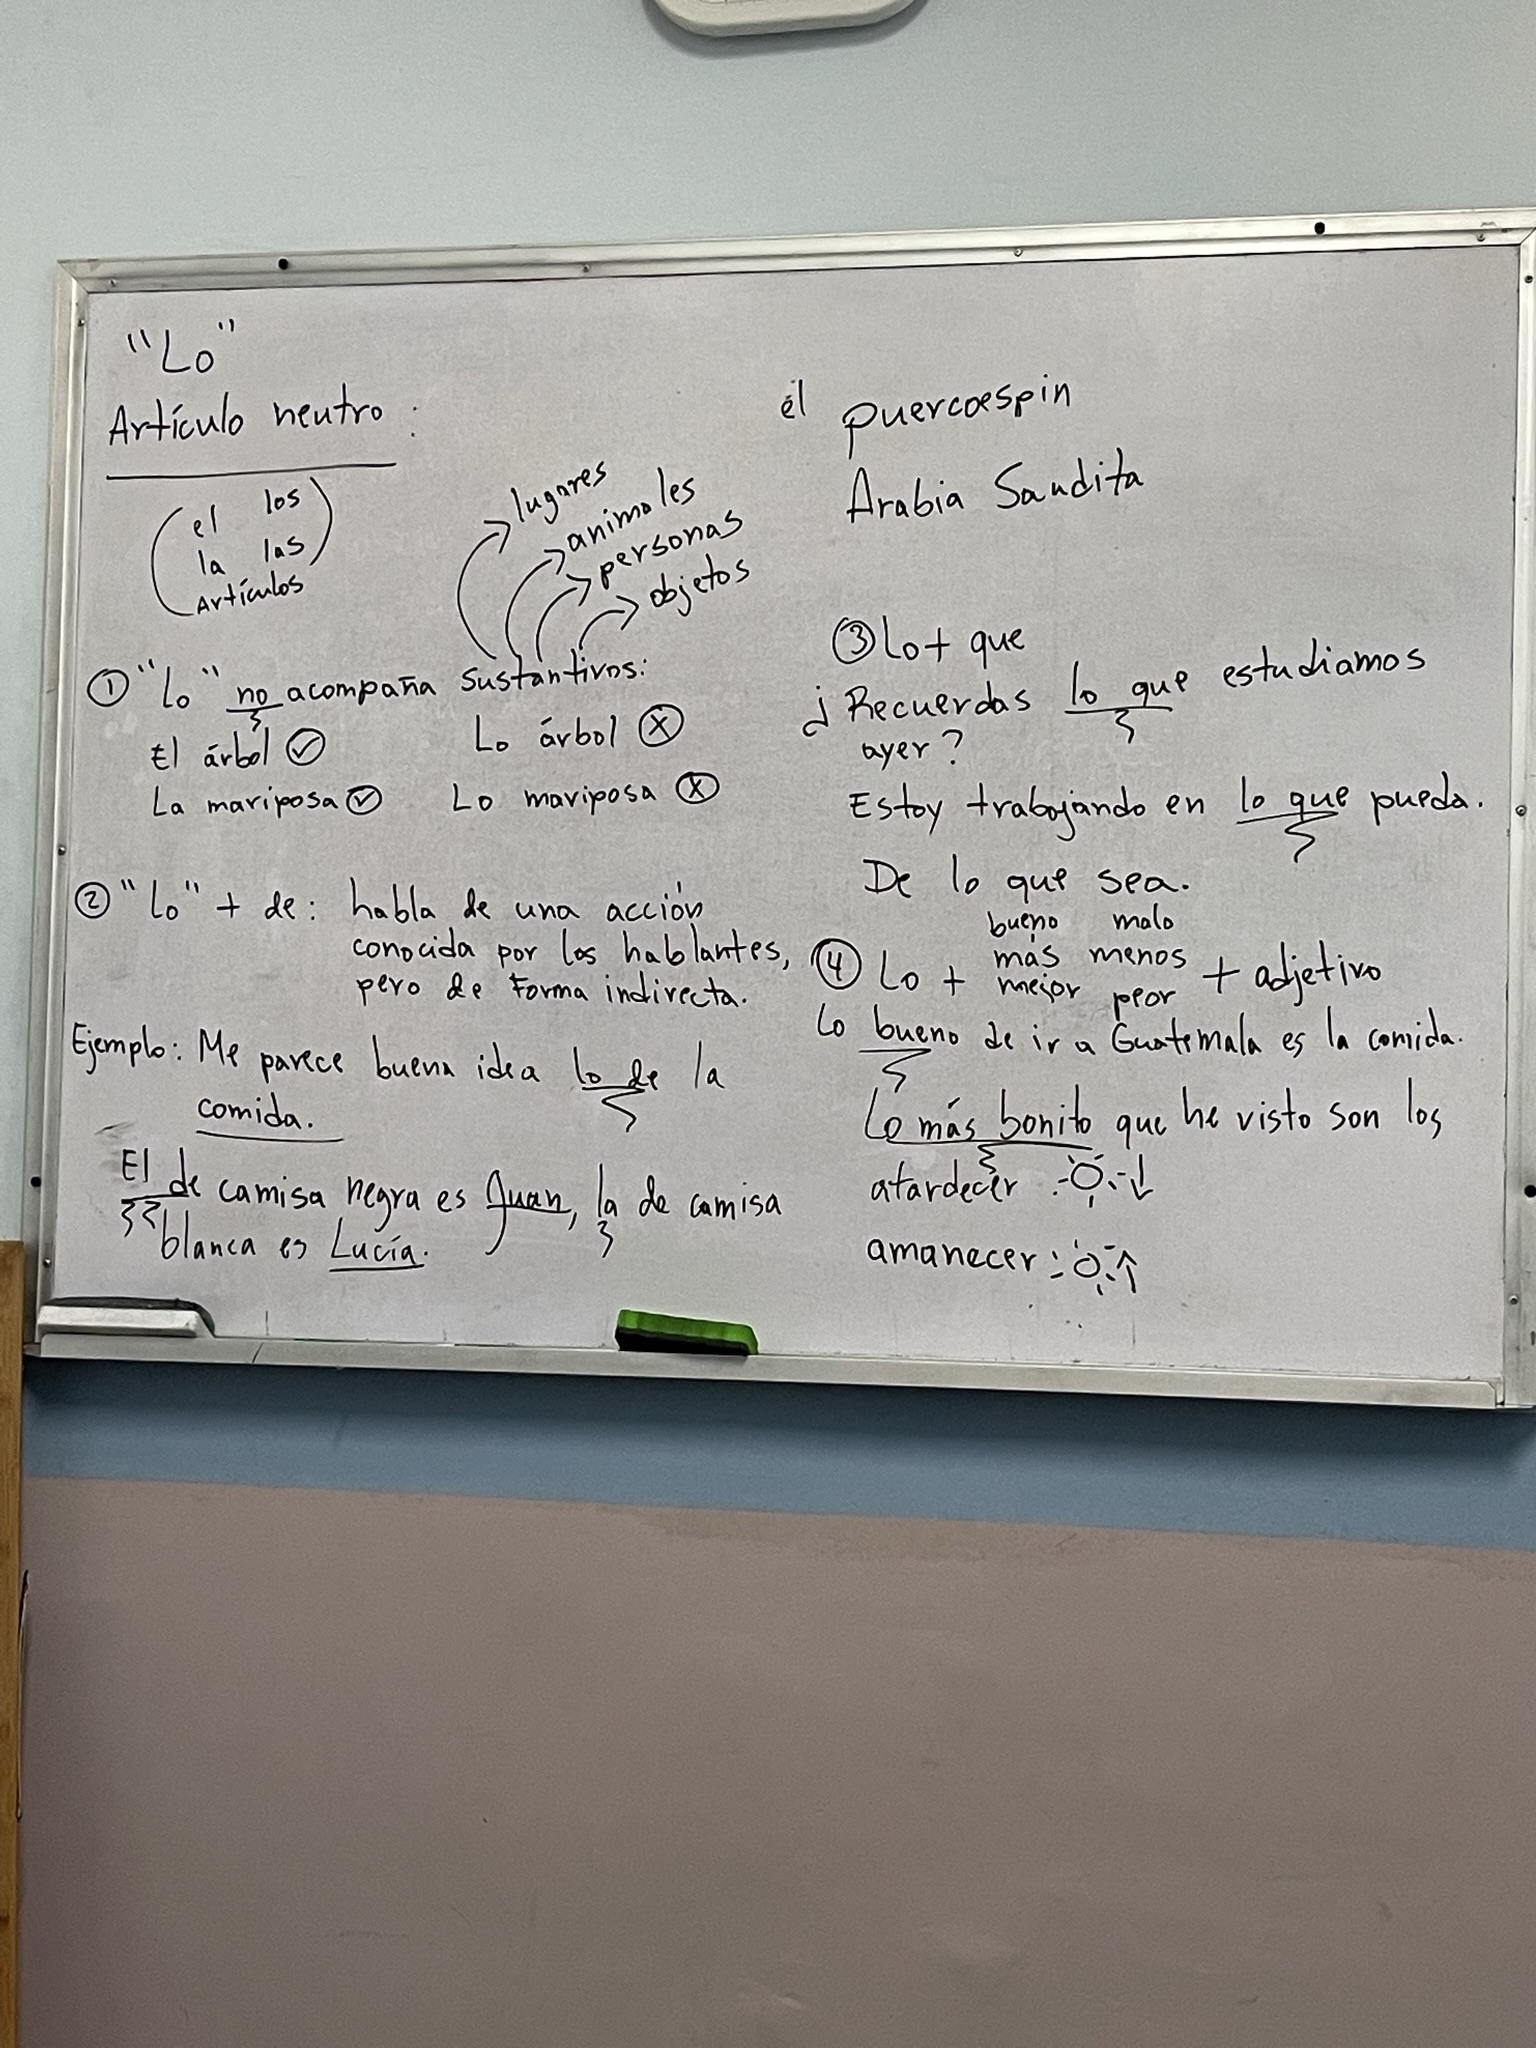 "Lo"
Artículo neutro:
(el los)
la las
Artículos
lugares
animales
personas
objetos
① "Lo" no acompaña sustantivos:
El árbol ✓ Lo árbol ✗
La mariposa ✓ Lo mariposa ✗
② "Lo" + de: habla de una acción
conocida por los hablantes,
pero de Forma indirecta.
Ejemplo: Me parece buena idea lo de la
comida.
El de camisa negra es Juan, la de camisa
blanca es Lucía.
él puercoespin
Arabia Saudita
③ Lo + que
¿Recuerdas lo que estudiamos
ayer?
Estoy trabajando en lo que pueda.
De lo que sea.
bueno malo
④ Lo + más menos + adjetivo
mejor peor
Lo bueno de ir a Guatemala es la comida.
Lo más bonito que he visto son los
atardecer
amanecer: